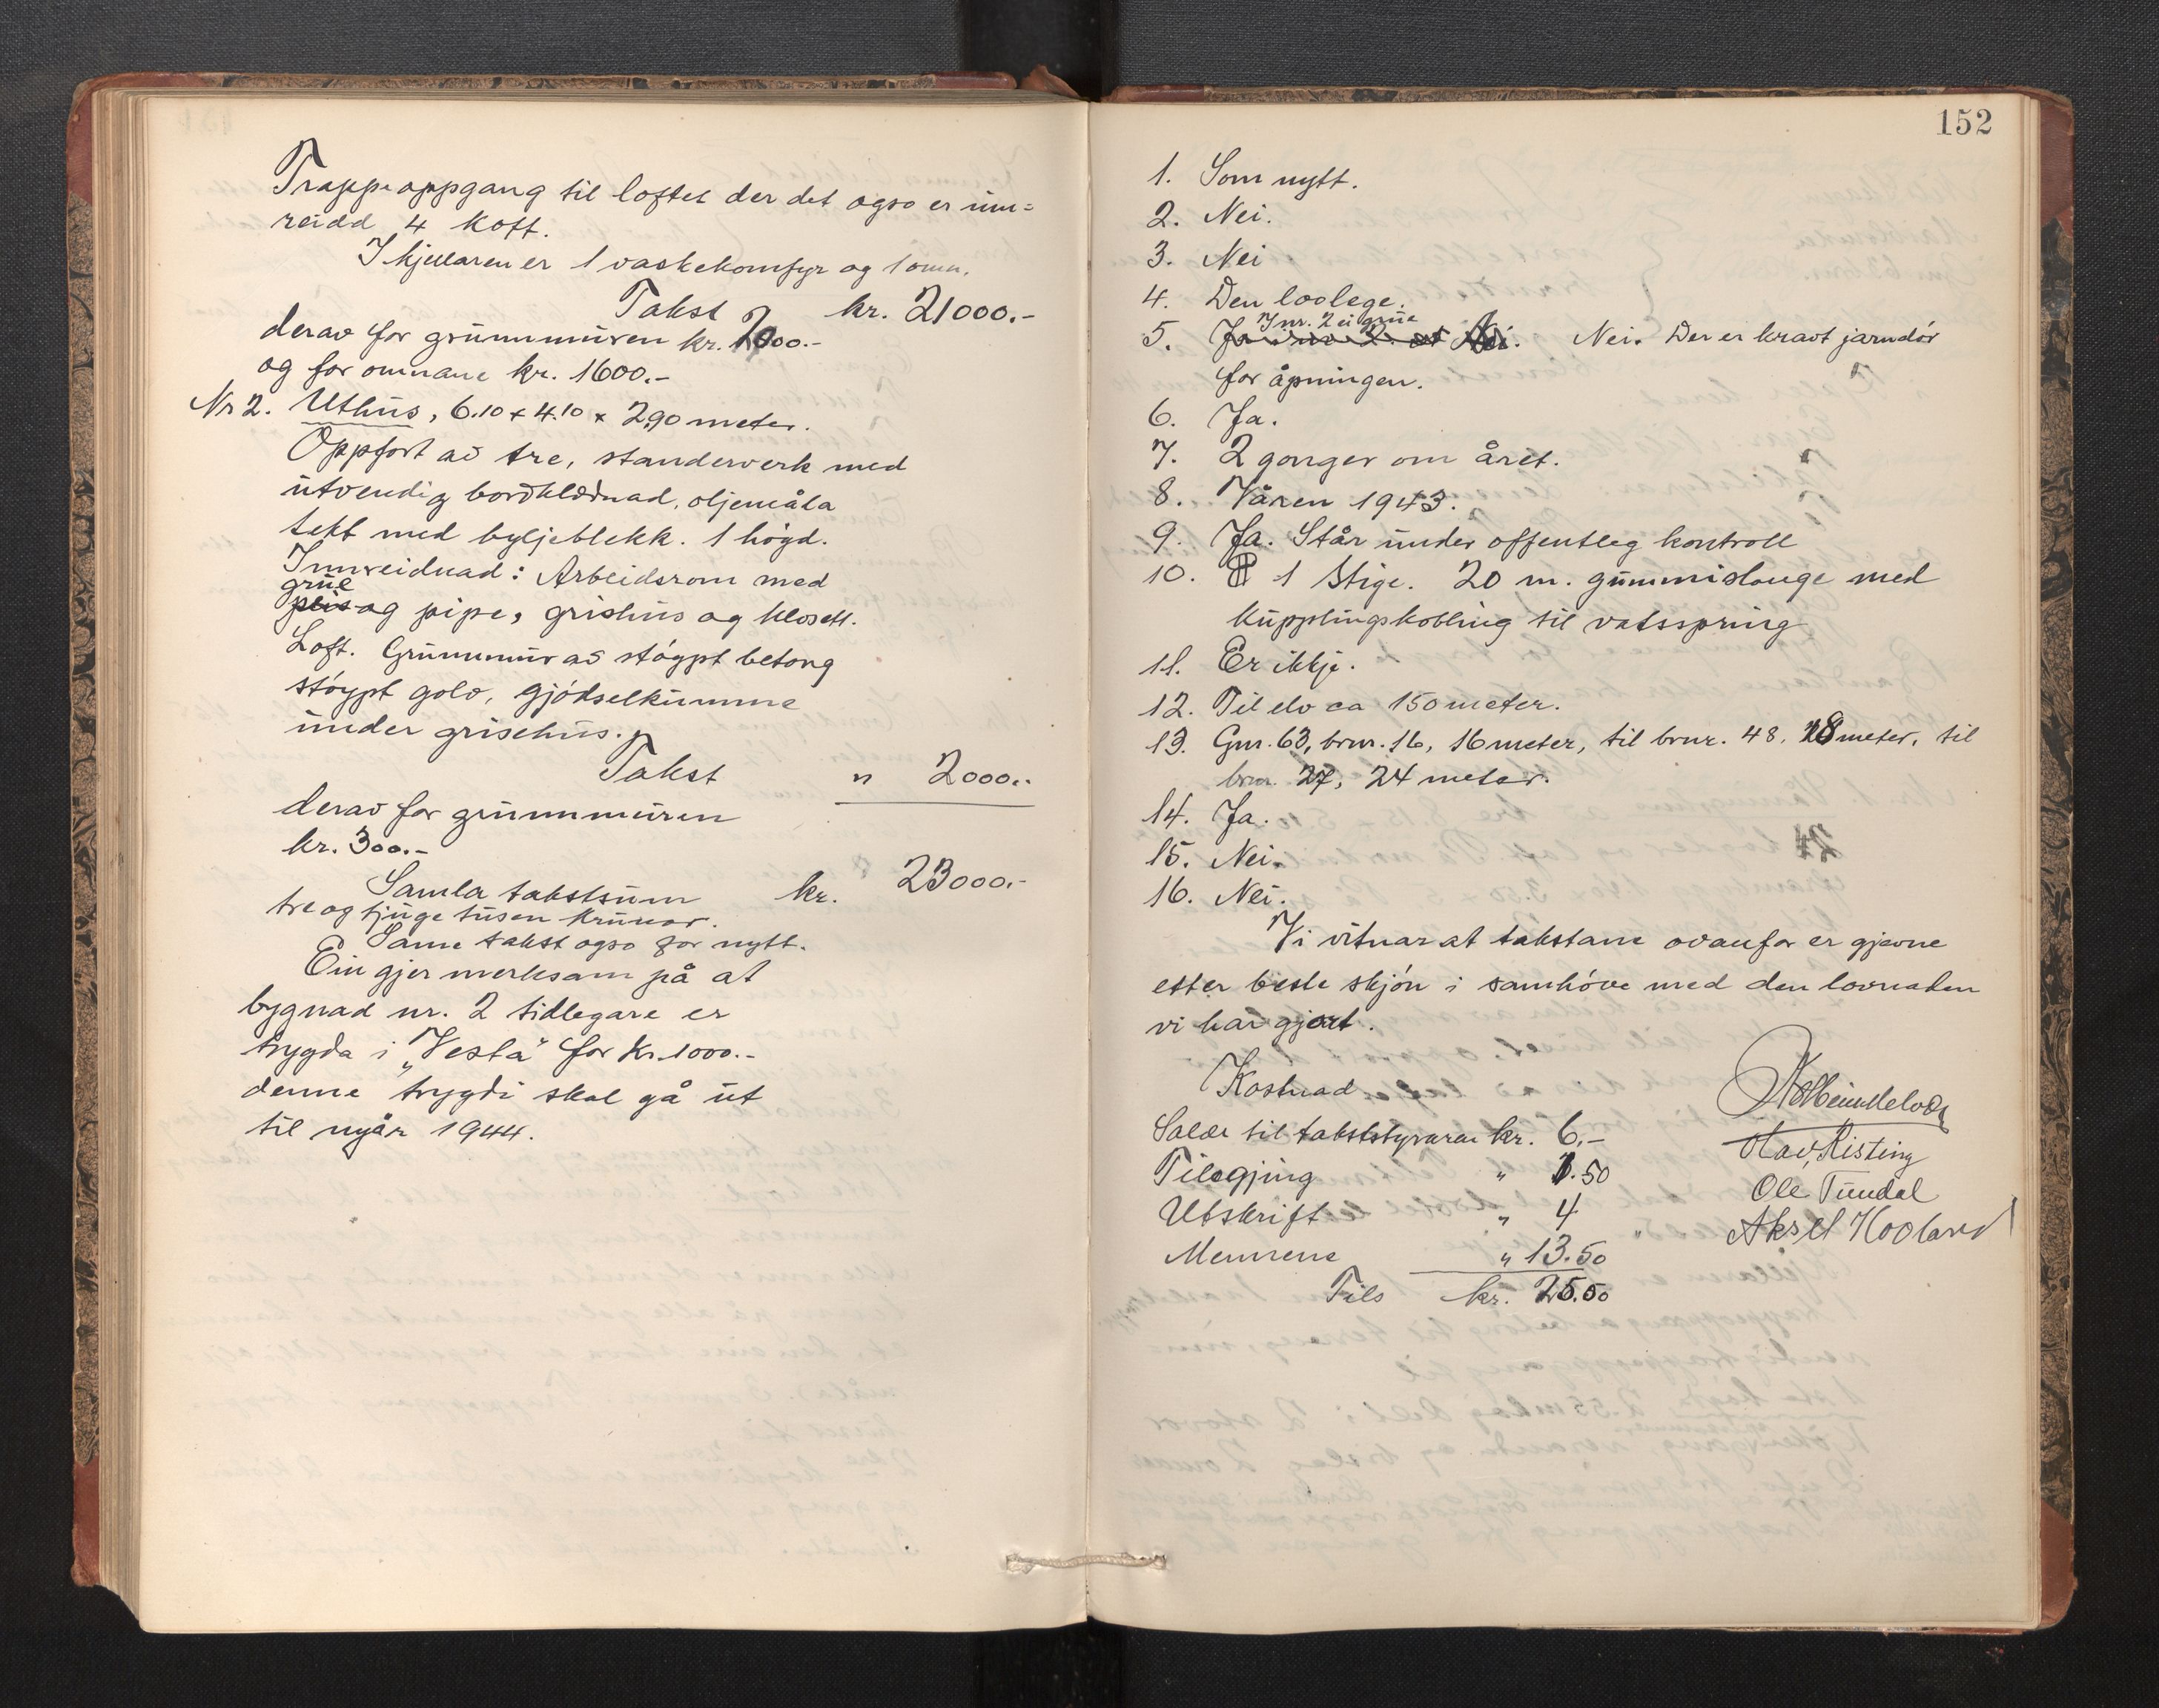 Trappeoppgang til loftet der det ogso er inn=
reidd 4 kott.
I kjellaren er 1 vaskekomfyr og 1 omn.
Takst kr. 21000.-
derav for grunnmuren kr. 2000.-
og for omnane kr. 1600.-
Nr 2. Uthus, 6.10 x 4.10 x 2,90 meter.
Oppført av tre, standerverk med
utvendig bordklædnad, oljemåla
tekt med bylgjeblekk. 1 høgd.
Innreidnad: Arbeidsrom med
grue
og pipe, grishus og klosett.
Loft. Grunnmur av støypt betong
støypt golv, gjødselkumme
under grisehus.
Takst " 2000.-
derav for grunnmuren
kr. 300.-
Samla takstsum kr. 23000.-
tre og tjuge tusen krunor.
Same takst ogso for nytt.
Ein gjer merksam på at
bygnad nr. 2 tidlegare er
trygda i „Vesta" for kr. 1000.-
denne trygdi skal gå ut
til nyår 1944.
152
1. Som nytt.
2. Nei.
3. Nei
4. Den lovlege.
I nr. 2 ei grue
5. Nei. Der er kravt jarndør
for åpningen.
6. Ja.
7. 2 gonger om året.
8. Våren 1943.
9. Ja. Står under offentleg kontroll
10. 1 Stige. 20 m. gummislange med
kupplingskobling til vatsspring
11. Er ikkje.
12. Til elv ca 150 meter.
13. Gnr. 63, brnr. 16, 16 meter, til brnr. 48, 18 meter, til
brnr. 27, 24 meter.
14. Ja.
15. Nei.
16. Nei.
Vi vitnar at takstane ovanfor er gjevne
etter beste skjøn i samhøve med den lovnaden
vi har gjort.
Kostnad
Salær til takststyraren kr. 6.-
Tilsegjing " 1.50
Utskrift " 4
Mennene " 13.50
Tils kr. 25.50
Olav Risting
Ole Tundal
Aksel Hovland